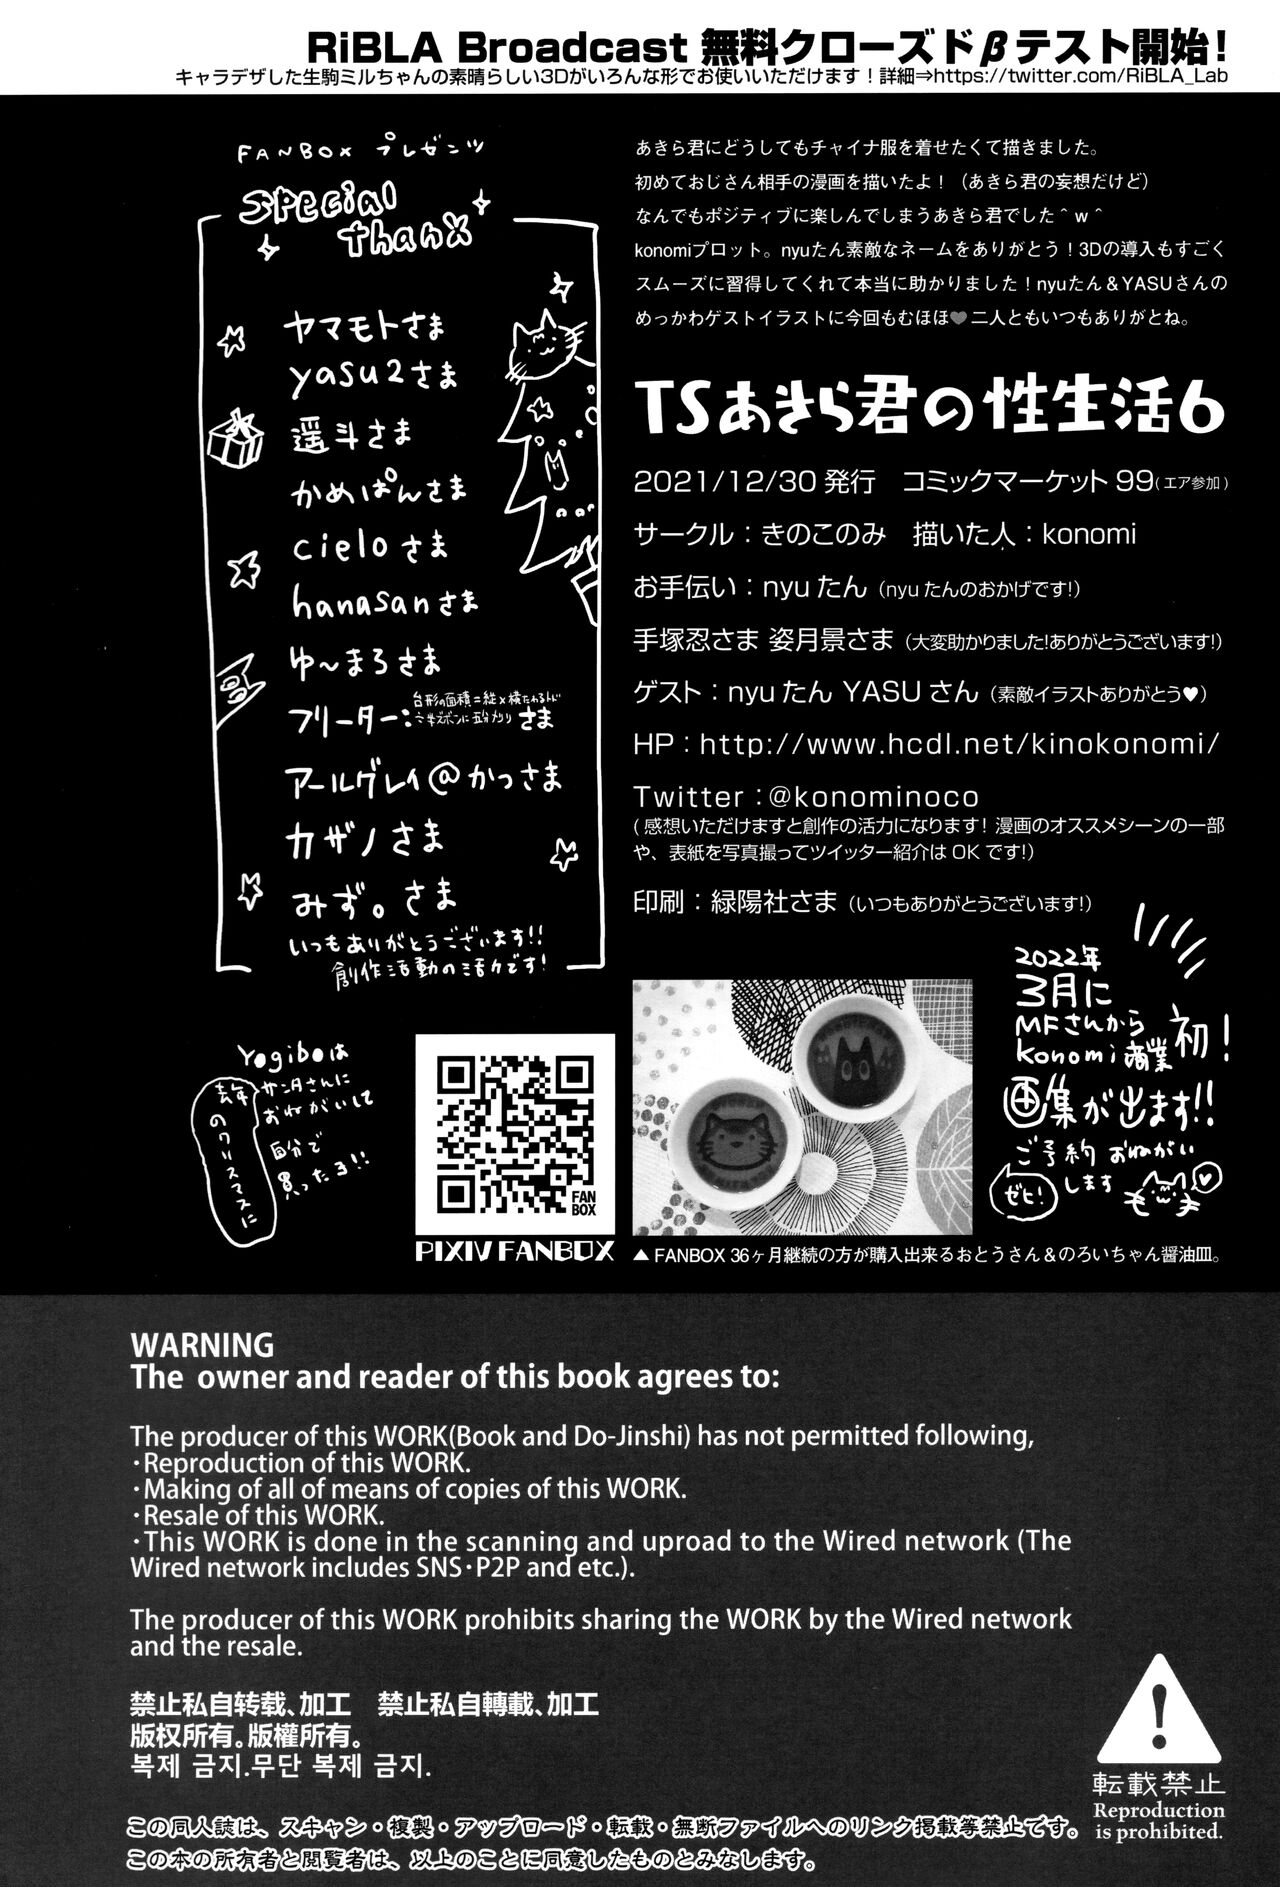 RiBLA Broadcast 無料クローズドβテスト開始!
キャラデザした生駒ミルちゃんの素晴らしい3Dがいろんな形でお使いいただけます!詳細⇒https://twitter.com/RiBLA_Lab
FANBOX プレゼンツ
Special
thanX
ヤマモトさま
yasu2さま
遥斗さま
かめぱんさま
cieloさま
hanasanさま
ゆ～まろさま
フリーター:台形の面積=縦×横たわるトド
六半ズボンに五分刈りさま
アールグレイ@かっさま
カザノさま
みず。さま
いつもありがとうございます!!
創作活動の活力です!
Yogiboは
去年のクリスマスに
サンタさんに
おねがいして
自分で
買ったよ!!
FAN
BOX
PIXIV FANBOX
あきら君にどうしてもチャイナ服を着せたくて描きました。
初めておじさん相手の漫画を描いたよ!(あきら君の妄想だけど)
なんでもポジティブに楽しんでしまうあきら君でした＾w＾
konomiプロット。nyuたん素敵なネームをありがとう!3Dの導入もすごく
スムーズに習得してくれて本当に助かりました!nyuたん＆YASUさんの
めっかわゲストイラストに今回もむほほ♥二人ともいつもありがとね。
TSあきら君の性生活6
2021/12/30 発行　コミックマーケット 99(エア参加)
サークル：きのこのみ　描いた人：konomi
お手伝い：nyuたん（nyuたんのおかげです!）
手塚忍さま 姿月景さま（大変助かりました!ありがとうございます!）
ゲスト：nyuたん YASUさん（素敵イラストありがとう♥）
HP：http://www.hcdl.net/kinokonomi/
Twitter：@konominoco
(感想いただけますと創作の活力になります! 漫画のオススメシーンの一部
や、表紙を写真撮ってツイッター紹介は OK です!)
印刷：緑陽社さま（いつもありがとうございます!）
2022年
3月に
MFさんから
konomi商業初!
画集が出ます!!
ご予約おねがい
します
ゼヒ!
▲ FANBOX 36ヶ月継続の方が購入出来るおとうさん＆のろいちゃん醤油皿。
WARNING
The owner and reader of this book agrees to:
The producer of this WORK(Book and Do-Jinshi) has not permitted following,
・Reproduction of this WORK.
・Making of all of means of copies of this WORK.
・Resale of this WORK.
・This WORK is done in the scanning and uproad to the Wired network (The
Wired network includes SNS・P2P and etc.).
The producer of this WORK prohibits sharing the WORK by the Wired network
and the resale.
禁止私自转载、加工　禁止私自轉載、加工
版权所有。版權所有。
복제 금지.무단 복제 금지.
この同人誌は、スキャン・複製・アップロード・転載・無断ファイルへのリンク掲載等禁止です。
この本の所有者と閲覧者は、以上のことに同意したものとみなします。
転載禁止
Reproduction
is prohibited.